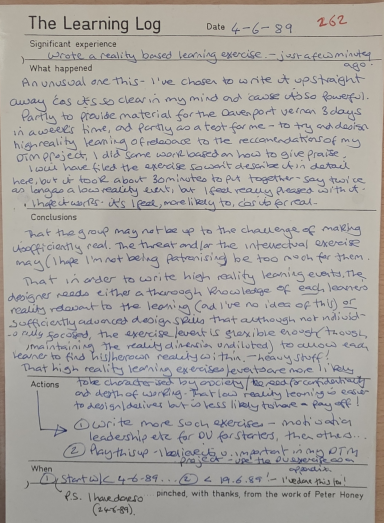 The Learning Log Date 4-6-89 262
Significant experience
Wrote a reality based learning exercise - just a few minutes
ago.
What happened
An unusual one this - I've chosen to write it up straight
away cos it's so clear in my mind and 'cause it's so powerful.
Partly to provide material for the Davenport Vernon 3 days
in a week's time, and partly as a test for me - to try and design
high reality learning of relevance to the reccomendations of my
DTM project, I did some work based on how to give praise.
I will have filed the exercise so won't describe it in detail
here, but it took about 30 minutes to put together - say twice
as long as a low reality event, but I feel really pleased with it.
I hope it works - it's, I feel, more likely to, cos it's for real.
Conclusions
That the group may not be up to the challenge of making
it sufficiently real. The threat and/or the intellectual exercise
may (I hope I'm not being patronising) be too much for them.
That in order to write high reality learning events, the
designer needs either a thorough knowledge of each learners
reality relevant to the learning (and I've no idea of this) or
sufficiently advanced design skills that although not individ-
ually focused, the exercise/event is flexible enough (though
maintaining the reality dimension undiluted) to allow each
learner to find his/her own reality within - heavy stuff!
That high reality learning exercises/events are more likely
to be characterised by anxiety/the need for confidentiality
and depth of working. That low reality learning is easier
to design/deliver but is less likely to have a pay off!
Actions
① Write more such exercises - motivation
leadership etc for DV for starters, then others...
② Play this up - in my DTM
project - use the DV exercise as an
appendix
When
① Start w < 4-6-89... ② < 19.6.89!
P.S. I have done so
(24-6-89)
pinched, with thanks, from the work of Peter Honey